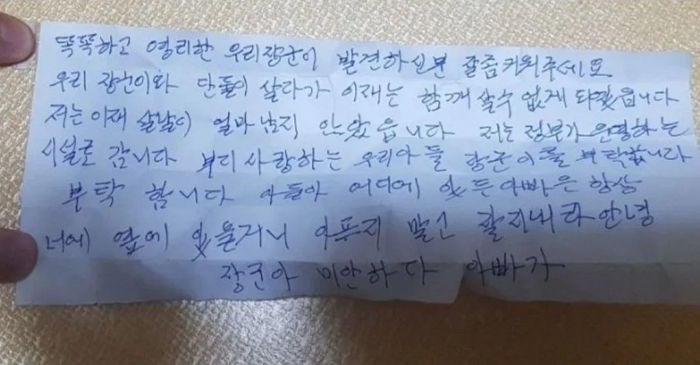 똑똑하고 영리한 우리장군이 발견하신분 잘좀키워주세요
우리 장군이와 단둘이 살다가 이재는 함께 살수 없게 되었읍니다
저는 이재 살날이 얼마 남지 안았읍니다 저는 정보가 운영하는
시설로 갑니다 부디 사랑하는 우리아들 장군이를 부탁합니다
부탁 합니다 아들아 어디에 있든 아빠은 항상
너에 옆에 있을거니 아푸지 말고 잘지내라 안녕
장군아 미안하다 아빠가